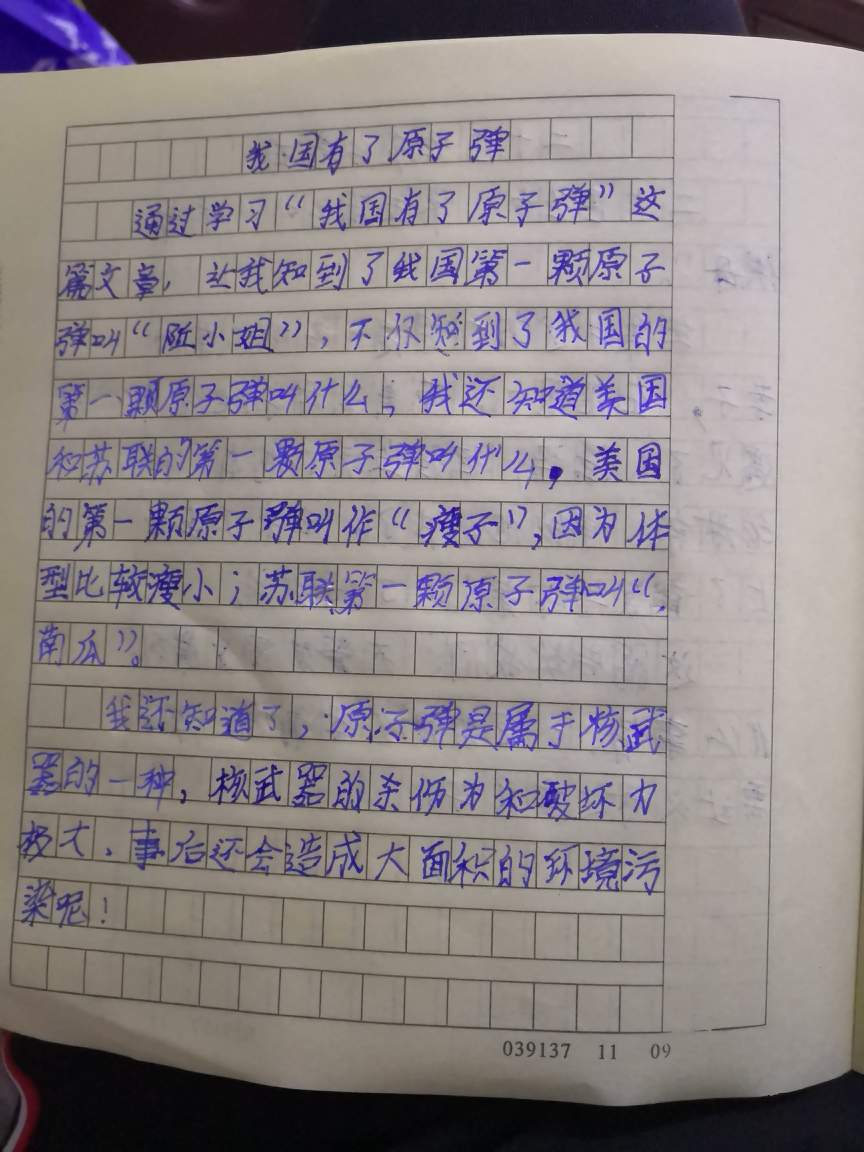 我国有了原子弹
通过学习“我国有了原子弹”这
篇文章，让我知到了我国第一颗原子
弹叫“邱小姐”，不仅知到了我国的
第一颗原子弹叫什么，我还知道美国
和苏联的第一颗原子弹叫什么。美国
的第一颗原子弹叫作“瘦子”，因为体
型比较瘦小；苏联第一颗原子弹叫“
南瓜”。
我还知道了，原子弹是属于核武
器的一种，核武器的杀伤力和破坏力
极大，事后还会造成大面积的环境污
染呢！
039137 11 09